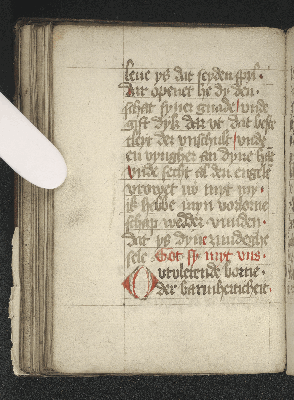 leue ys dat seyden spyl.
dar opent he dy den
schat syner gnade vnde
gift dyk dar vt dat beste
kleyt der vnschult vnde
en vyngher an dyne hant
vnde secht al den engele
vrowet iw myt my.
ik hebbe myn vorlorne
schap wedder vunden.
dat ys dyne arme
sele. Got sy myt vns.
O vtvletende borne
der barmherticheit.